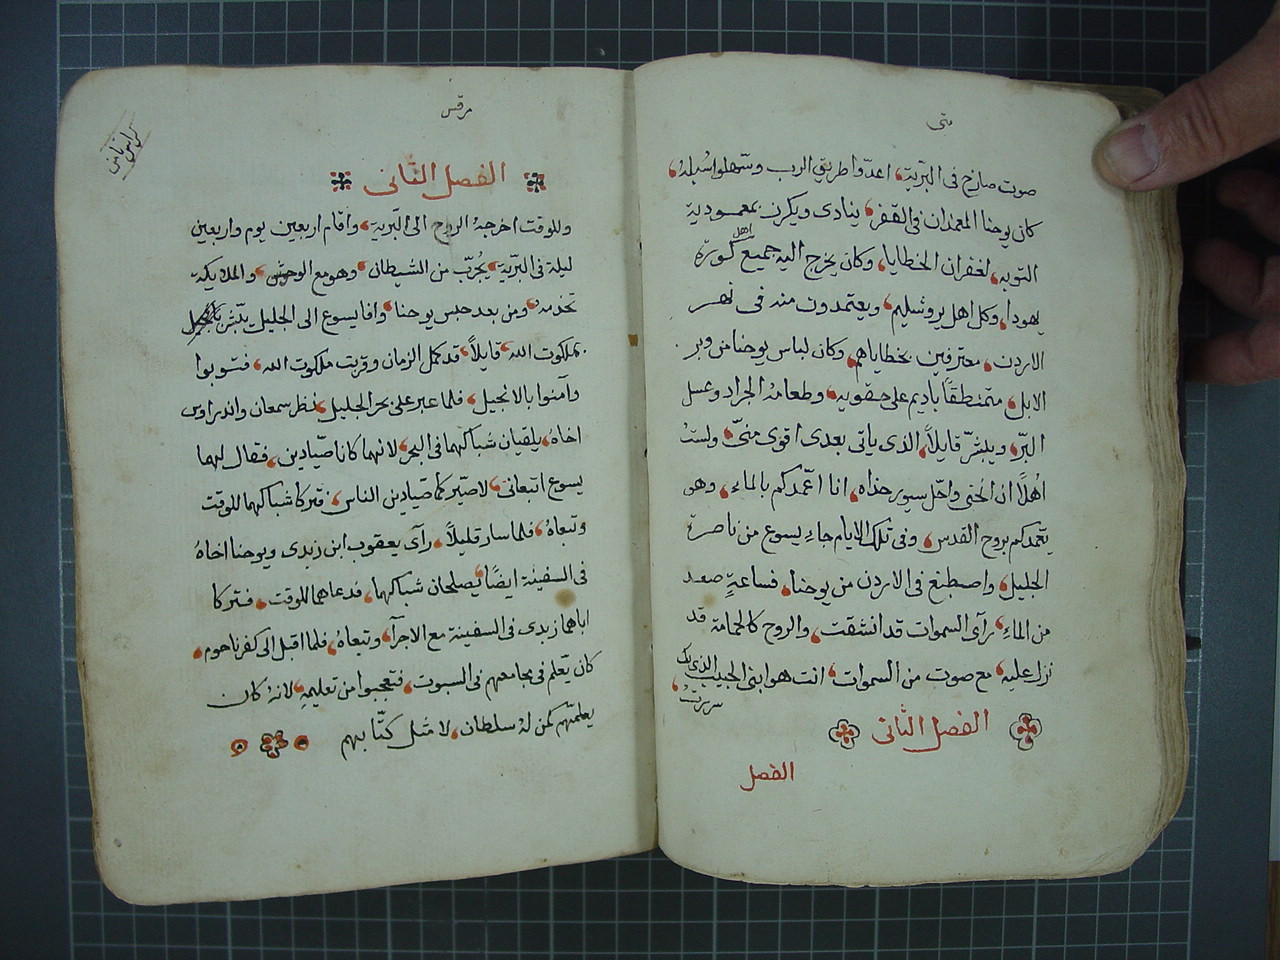 متى
صوت صارخ فى البرّية، اعدّوا طريق الرب وسّهلوا سُبلهُ،
كان يوحنا المعمدان فى القفر، ينادى ويكرز بمعمودية
التوبه، لغفران الخطايا، وكان يخرج اليه جميع اهل كورة
يهودا، وكل اهل يروشليم، ويعتمدون منه فى نهر
الاردن، معترفين بخطاياهم، وكان لباس يوحنا من وبر
الابل، متمنطقًا باديم على حقويه، وطعامهُ الجراد وعسل
البرّ، ويبشّر قايلاً، الذى ياتى بعدى اقوى منىّ، ولستُ
اهْلاً ان انحنى واحّل سيور حذاه، انا اعّمدكم بالماء، وهو
يعّمدكم بروح القدس، وفى تلك الايام جاء يسوع من ناصرة
الجليل، واصطبغ فى الاردن من يوحنا، فساعةٍ صعد
من الماء، رآى السموات قد انشقت، والروح كالحمامة قد
نزل عليه، مع صوت من السموات، انت هو ابنى الحبيب الذى بك
سررتُ،
الفصل الثانى
الفصل
مرقس
كراس ثامن
الفصل الثانى
وللوقت اخرجهُ الروح الى البّرية، واقام اربعين يوم واربعين
ليلة فى البرّية، يُجرّب من الشيطان، وهو مع الوحوش، والملايكة
تخدمهُ، ومن بعد حبس يوحنا، وافا يسوع الى الجليل يبّشر
بملكوت الله، قايلاً، قد كمل الزمان وقربت ملكوت الله، فتوبوا
وآمنوا بالانجيل، فلما عبر على بحر الجليل، نظر سمعان واندراوس
اخاهُ، يلقيان شباكهما فى البحر، لانهما كانا صيّادين، فقال لهما
يسوع اتبعانى، لاصيّركما صيادين الناس، فتركا شباكهما للوقت
وتبعاهُ، فلما سار قليلاً، رآى يعقوب ابن زبدى ويوحنا اخاهُ
فى السفينة ايضًا، يصلحان شباكهما، فدعاهما للوقت، فتركا
اباهما زبدى فى السفينة مع الاجرآ، وتبعاهُ، فلما اقبل الى كفرناحوم،
كان يّعلم فى مجامعهم فى السبوت، فتعجبوا من تعليمهِ، لانهُ كان
يعلمّهم كمن لهُ سلطان، لا مثل كتّابهم